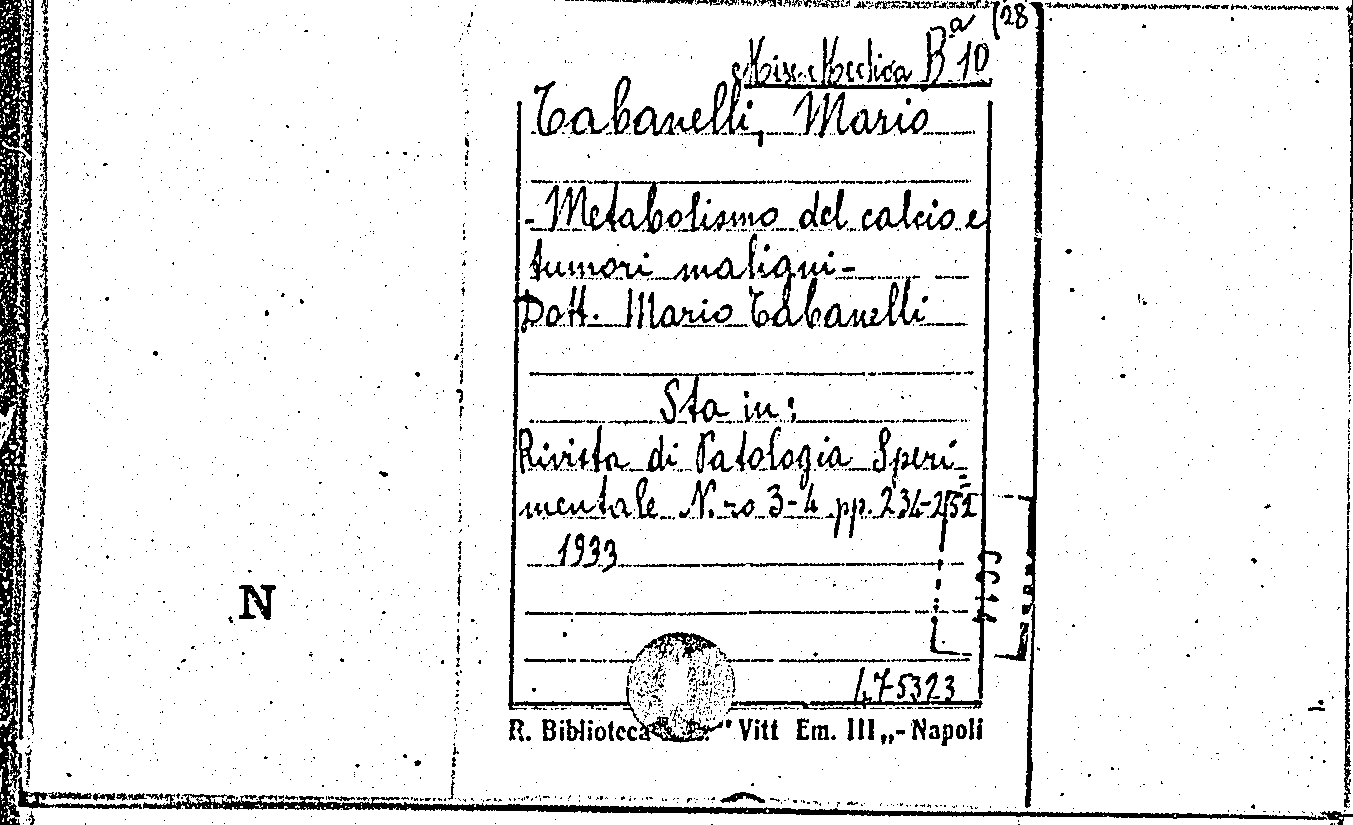 Misc. Medica Bª 10 (28
Tabanelli, Mario
- Metabolismo del calcio e
tumori maligni -
Dott. Mario Tabanelli
Sta in:
Rivista di Patologia Speri=
mentale N.ro 3-4 pp. 234-252
1933
475323
R. Biblioteca " Vitt Em. III „- Napoli
N